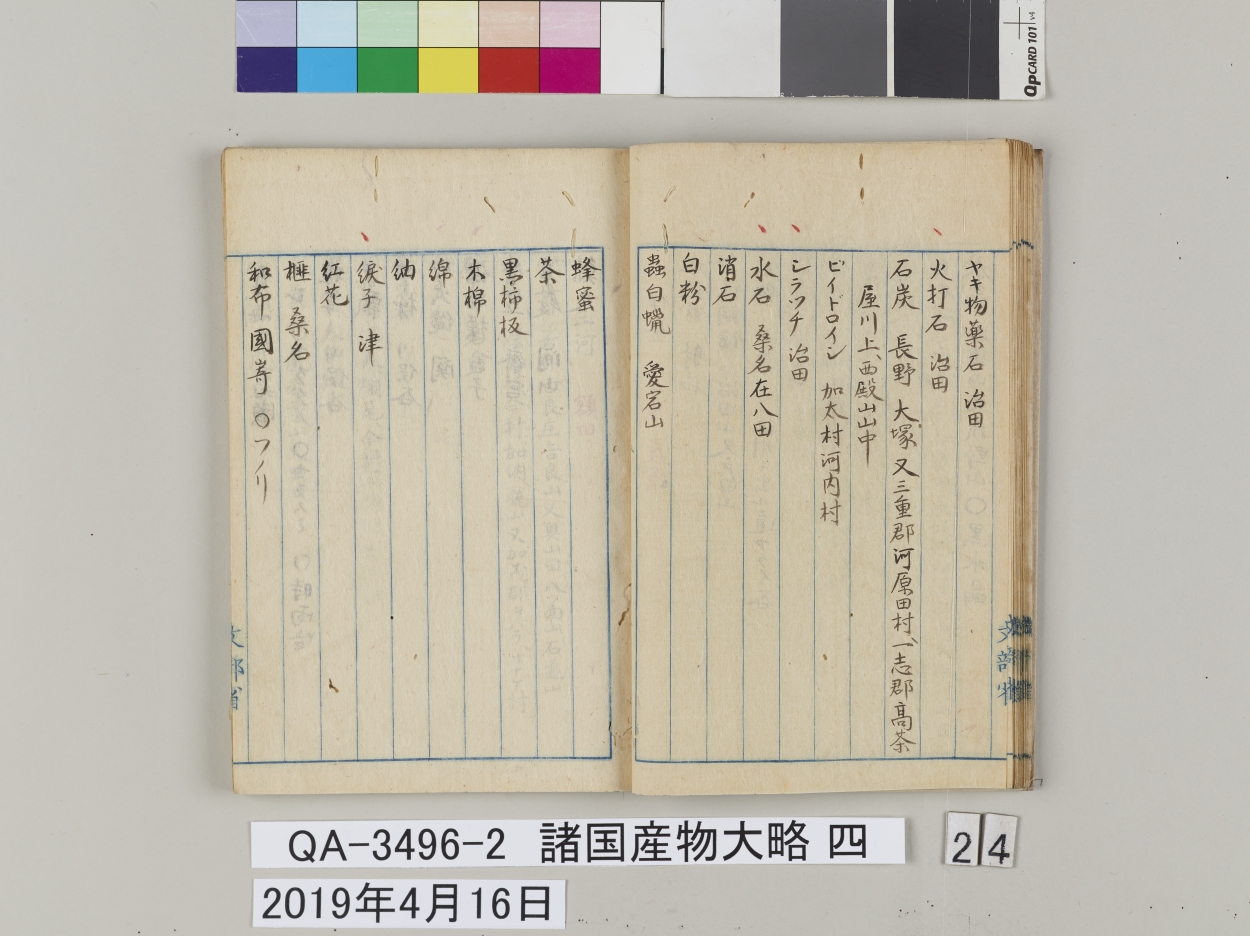 QPCARD 101 v4
ヤキ物藥石 治田
火打石 治田
石炭 長野 大塚 又三重郡河原田村、一志郡髙茶
屋川上、西殿山山中
ビイドロイシ 加太村河内村
シラツチ 治田
水石 桑名在八田
消石
白粉
蟲白蠟 愛宕山
文部省
蜂蜜
茶
黒柿板
木棉
綿
紬
綟子 津
紅花
榧 桑名
和布 國﨑 〇フノリ
文部省
QA-3496-2 諸国産物大略 四
24
2019年4月16日